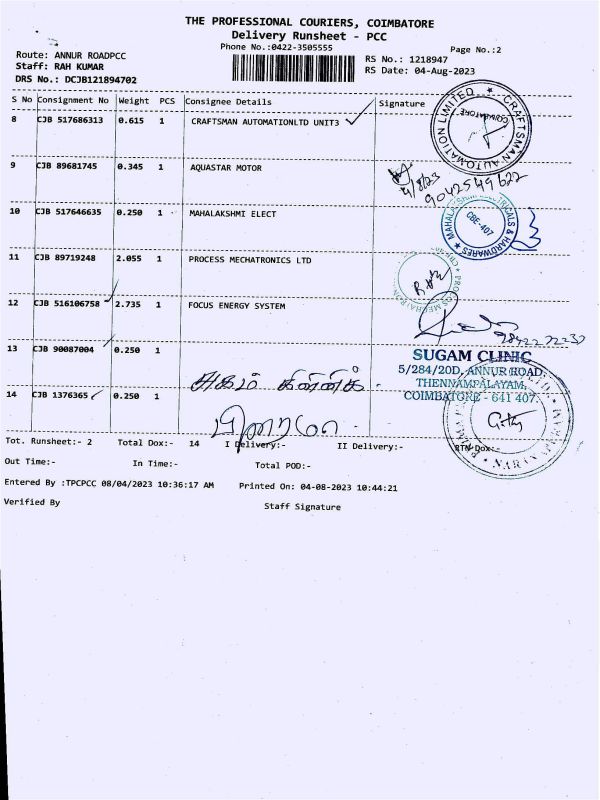 THE PROFESSIONAL COURIERS, COIMBATORE
Delivery Runsheet - PCC
Phone No.:0422-3505555
Page No.:2
Route: ANNUR ROADPCC
Staff: RAH KUMAR
DRS No.: DCJB121894702
RS No.: 1218947
RS Date: 04-Aug-2023
S No Consignment No Weight PCS Consignee Details Signature
8 CJB 517686313 0.615 1 CRAFTSMAN AUTOMATIONLTD UNIT3
CRAFTSMAN AUTOMATION LIMITED
COIMBATORE
9 CJB 89681745 0.345 1 AQUASTAR MOTOR
4/8/23
9042549622
10 CJB 517646635 0.250 1 MAHALAKSHMI ELECT
MAHALAKSHMI ELECTRICALS & HARDWARES
CBE-407
11 CJB 89719248 2.055 1 PROCESS MECHATRONICS LTD
12 CJB 516106758 2.735 1 FOCUS ENERGY SYSTEM
13 CJB 90087004 0.250 1
SUGAM CLINIC
5/284/20D, ANNUR ROAD,
THENNAMPALAYAM,
COIMBATORE - 641 407.
சுகம் கிளினிக்
14 CJB 1376365 0.250 1
Tot. Runsheet:- 2 Total Dox:- 14 I Delivery:- II Delivery:- RTN Dox:-
Out Time:- In Time:- Total POD:-
Entered By :TPCPCC 08/04/2023 10:36:17 AM Printed On: 04-08-2023 10:44:21
Verified By Staff Signature